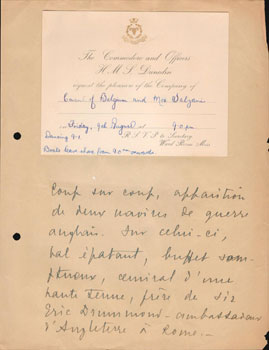 The Commodore and Officers
H.M.S. Dresden
request the pleasure of the Company of
Consul of Belgium and Mrs
Friday, 9th August at 9.0 p.m.
Dancing 9-1
R.S.V.P. to Secretary
Ward Room Mess
Boats leave shore from
Coup sur coup, apparition
de deux navires de guerre
anglais. Sur celui-ci,
bal épatant, buffet somp-
tueux, amiral d'une
haute tenue, frère de Sir
Eric Drummond - ambassadeur
d'Angleterre à Rome.-